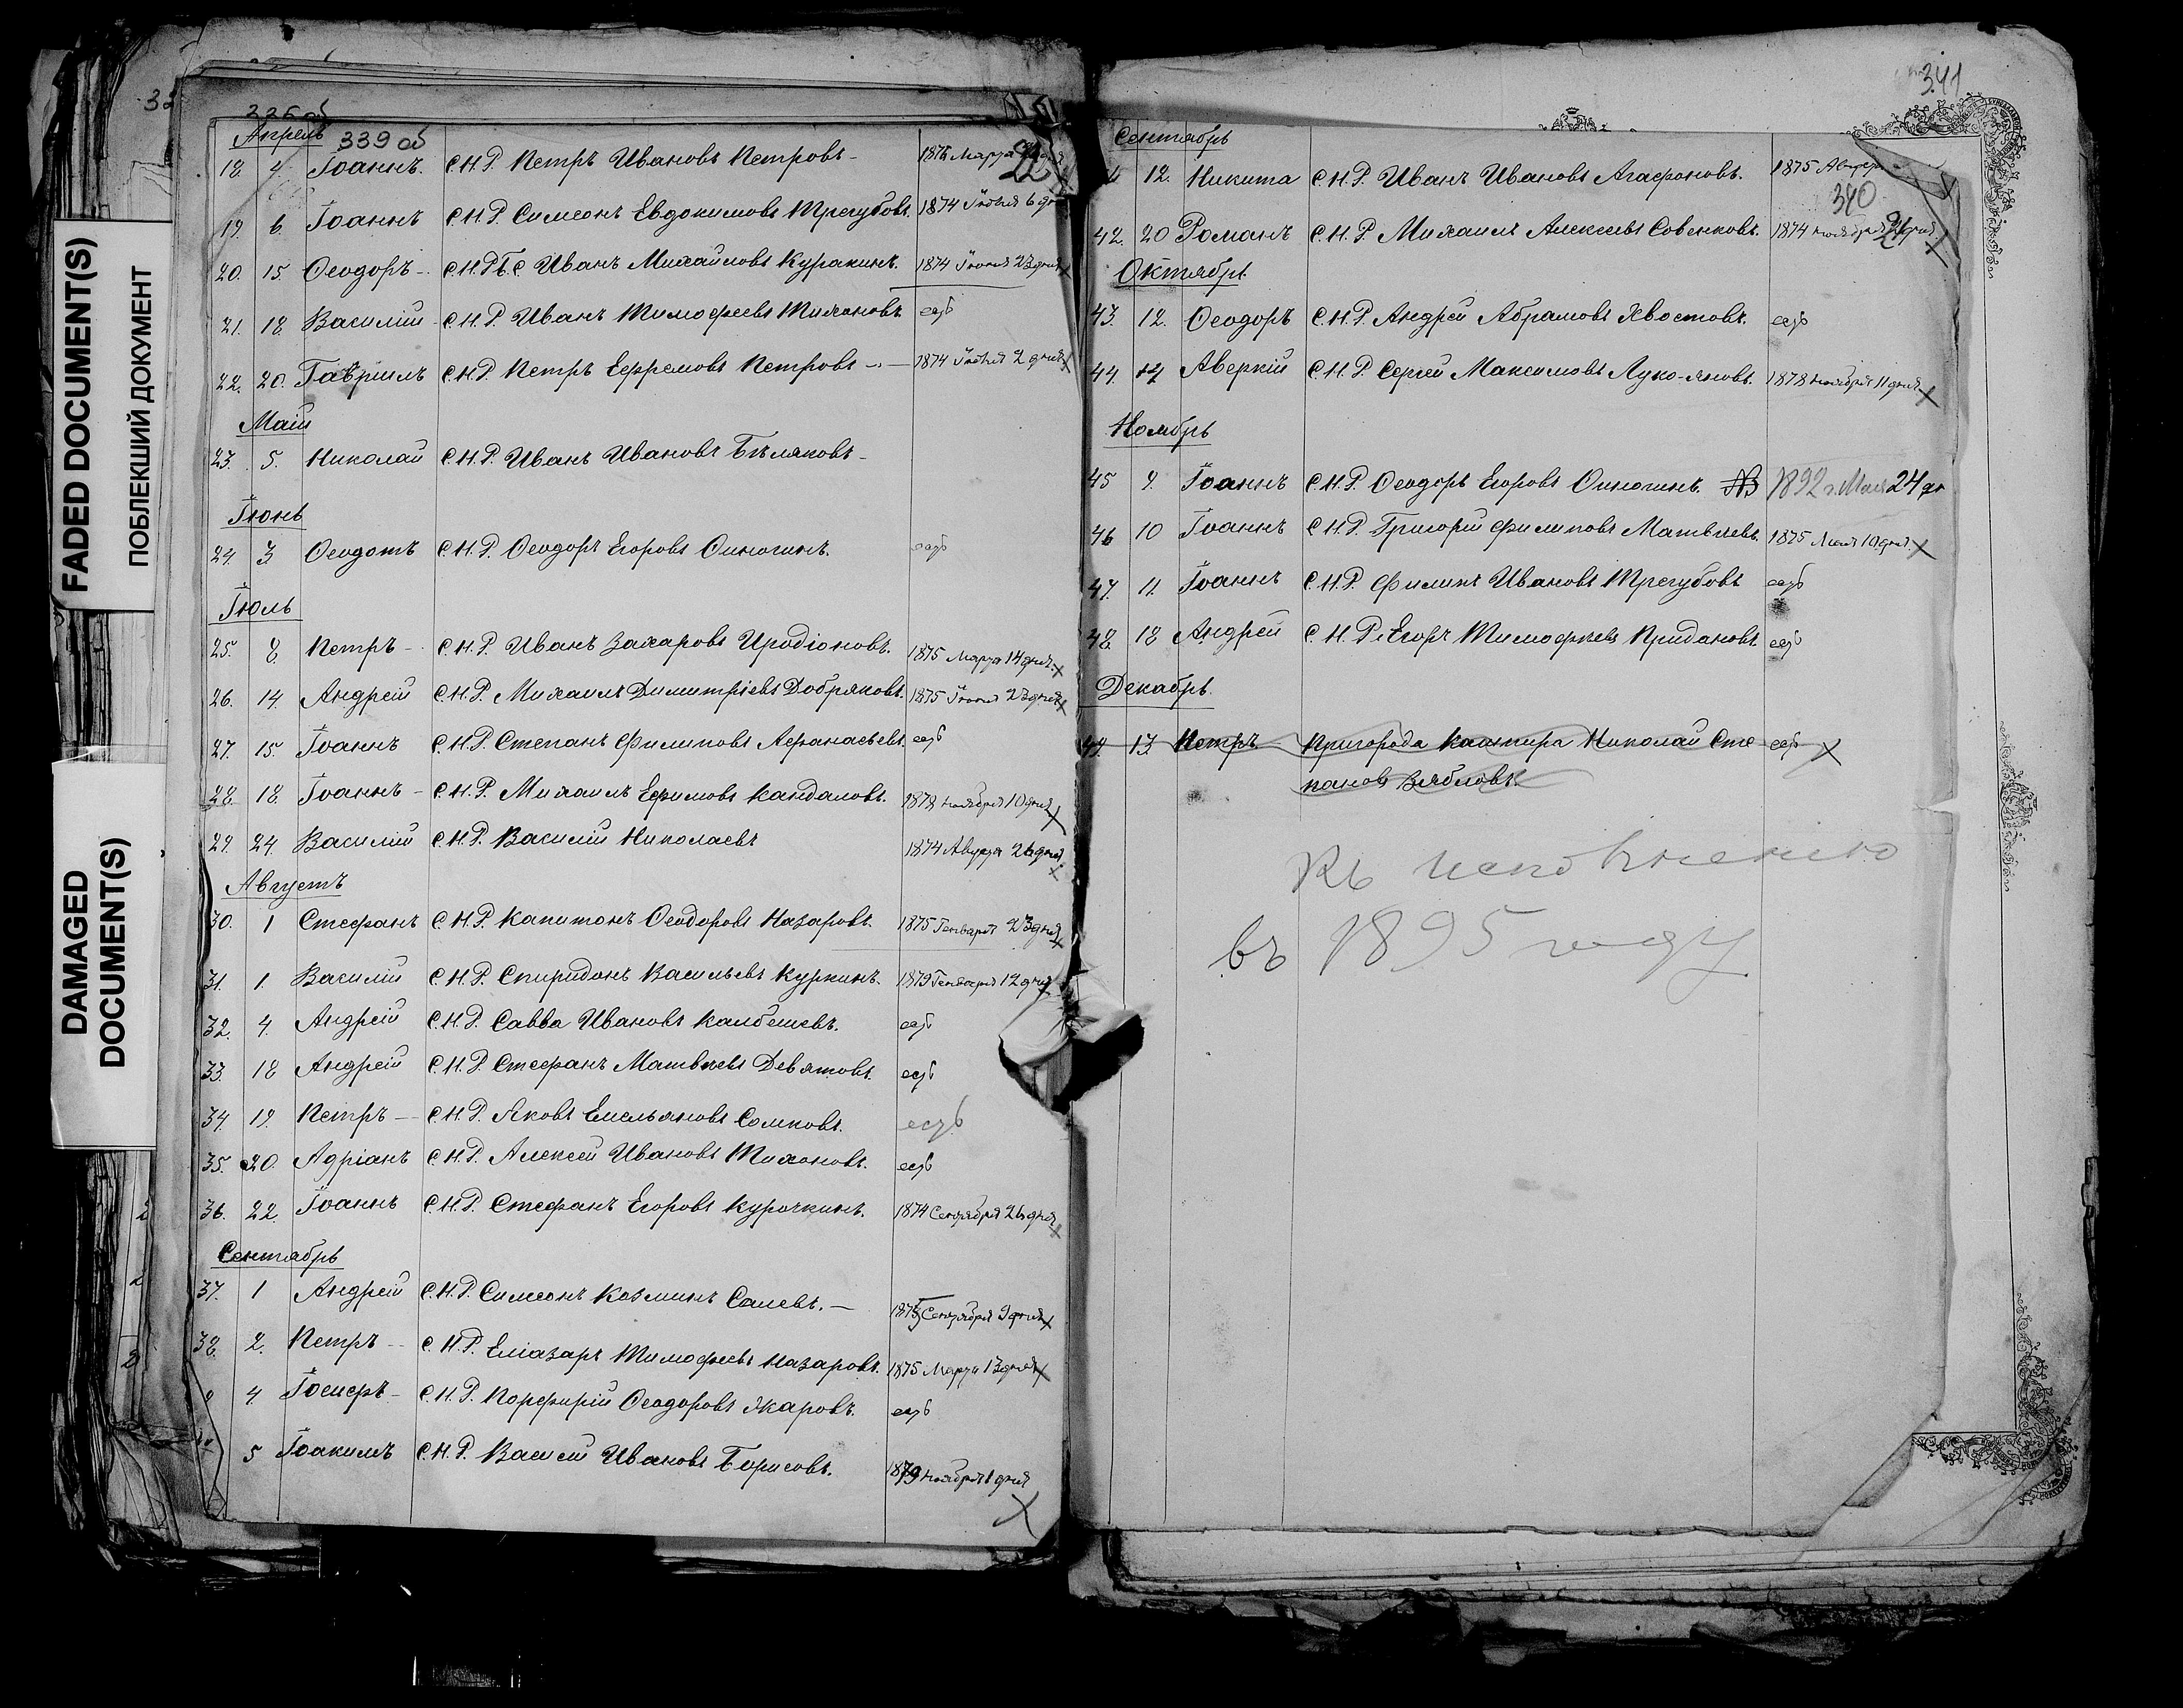 FADED DOCUMENT(S)
ПОБЛЕКШИЙ ДОКУМЕНТ
DAMAGED
DOCUMENT(S)
339 об
Апрель
18. 4. Іоаннъ. С.Н.Р. Петръ Ивановъ Петровъ 22
19. 6. Іоаннъ С.Н.Р. Симеонъ Евдокимовъ Трегубовъ. 1874 Іюня 6
20. 15. Ѳеодоръ С.Н.Р. Иванъ Михайловъ Куракинъ. 1874 Іюня 23 дня
21. 18. Василій С.Н.Р. Иванъ Тимофеевъ Тихоновъ. есть
22. 20. Гавріилъ С.Н.Р. Петръ Ефремовъ Петровъ 1874 Іюня 2 дня
Май
23. 5. Николай С.Н.Р. Иванъ Ивановъ Бѣляковъ
Іюнь
24. 3 Ѳеодотъ С.Н.Р. Ѳеодоръ Егоровъ Синюгинъ. есть
Іюль
25. 8. Петръ С.Н.Р. Иванъ Захаровъ Иродіоновъ. 1875 Марта 14 дня
26. 14. Андрей С.Н.Р. Михаилъ Димитріевъ Добряковъ. 1875 Іюня 23 дня
27. 15. Іоаннъ С.Н.Р. Степанъ Филиповъ Афанасьевъ. есть
28. 18. Іоаннъ С.Н.Р. Михаилъ Ефимовъ Кандаловъ. 1878 ноября 10 дня
29. 24. Василій С.Н.Р. Василій Николаевъ 1874 Августа 26 дня
Августъ
30. 1 Стефанъ С.Н.Р. Капитонъ Ѳеодоровъ Назаровъ. 1875 Генваря 23 дня
31. 1. Василій С.Н.Р. Спиридонъ Васильевъ Куркинъ. 1879 Генваря 12 дня
32. 4. Андрей С.Н.Р. Савва Ивановъ Калбешевъ. есть
33. 18 Андрей С.Н.Р. Стефанъ Матвѣевъ Девятовъ. есть
34. 19. Петръ С.Н.Р. Яковъ Емельяновъ Сомковъ. есть
35. 20. Адріанъ С.Н.Р. Алексей Ивановъ Тихоновъ. есть
36. 22. Іоаннъ С.Н.Р. Стефанъ Егоровъ Курочкинъ. 1874 Сентября 26 дня
Сентябрь
37. 1 Андрей С.Н.Р. Симеонъ Козминъ Салевъ. Сентября 9 дня
38. 2. Петръ С.Н.Р. Еліазаръ Тимофеевъ Назаровъ. 1875 Марта 13 дня
4 Іосифъ С.Н.Р. Порфирій Ѳеодоровъ Жаровъ. есть
5 Іоакимъ С.Н.Р. Василій Ивановъ Борисовъ. 1879 ноября 1 дня
341
Сентябрь
12. Никита С.Н.Р. Иванъ Ивановъ Агафоновъ. 1875
340
42. 20 Романъ С.Н.Р. Михаилъ Алексѣевъ Совенковъ. 1874 ноября
Октябрь
43. 12. Ѳеодоръ С.Н.Р. Андрей Абрамовъ Хвостовъ. есть
44. Аверкій С.Н.Р. Сергей Максимовъ Лукояновъ. 1878 ноября 11 дня
Ноябрь
45 9. Іоаннъ С.Н.Р. Ѳеодоръ Егоровъ Синюгинъ. 1892 г. Мая 24 дн
46 10 Іоаннъ С.Н.Р. Григорій Филиповъ Матвѣевъ. 1875 10 дня
47. 11. Іоаннъ С.Н.Р. Филипъ Ивановъ Трегубовъ есть
48. 18 Андрей С.Н.Р. Егоръ Тимофѣевъ Придановъ. есть
Декабрь.
49. 13 Петръ Пригорода Кашпира Николай Сте- есть
пановъ Зябловъ.
Къ исполненію
въ 1895 году